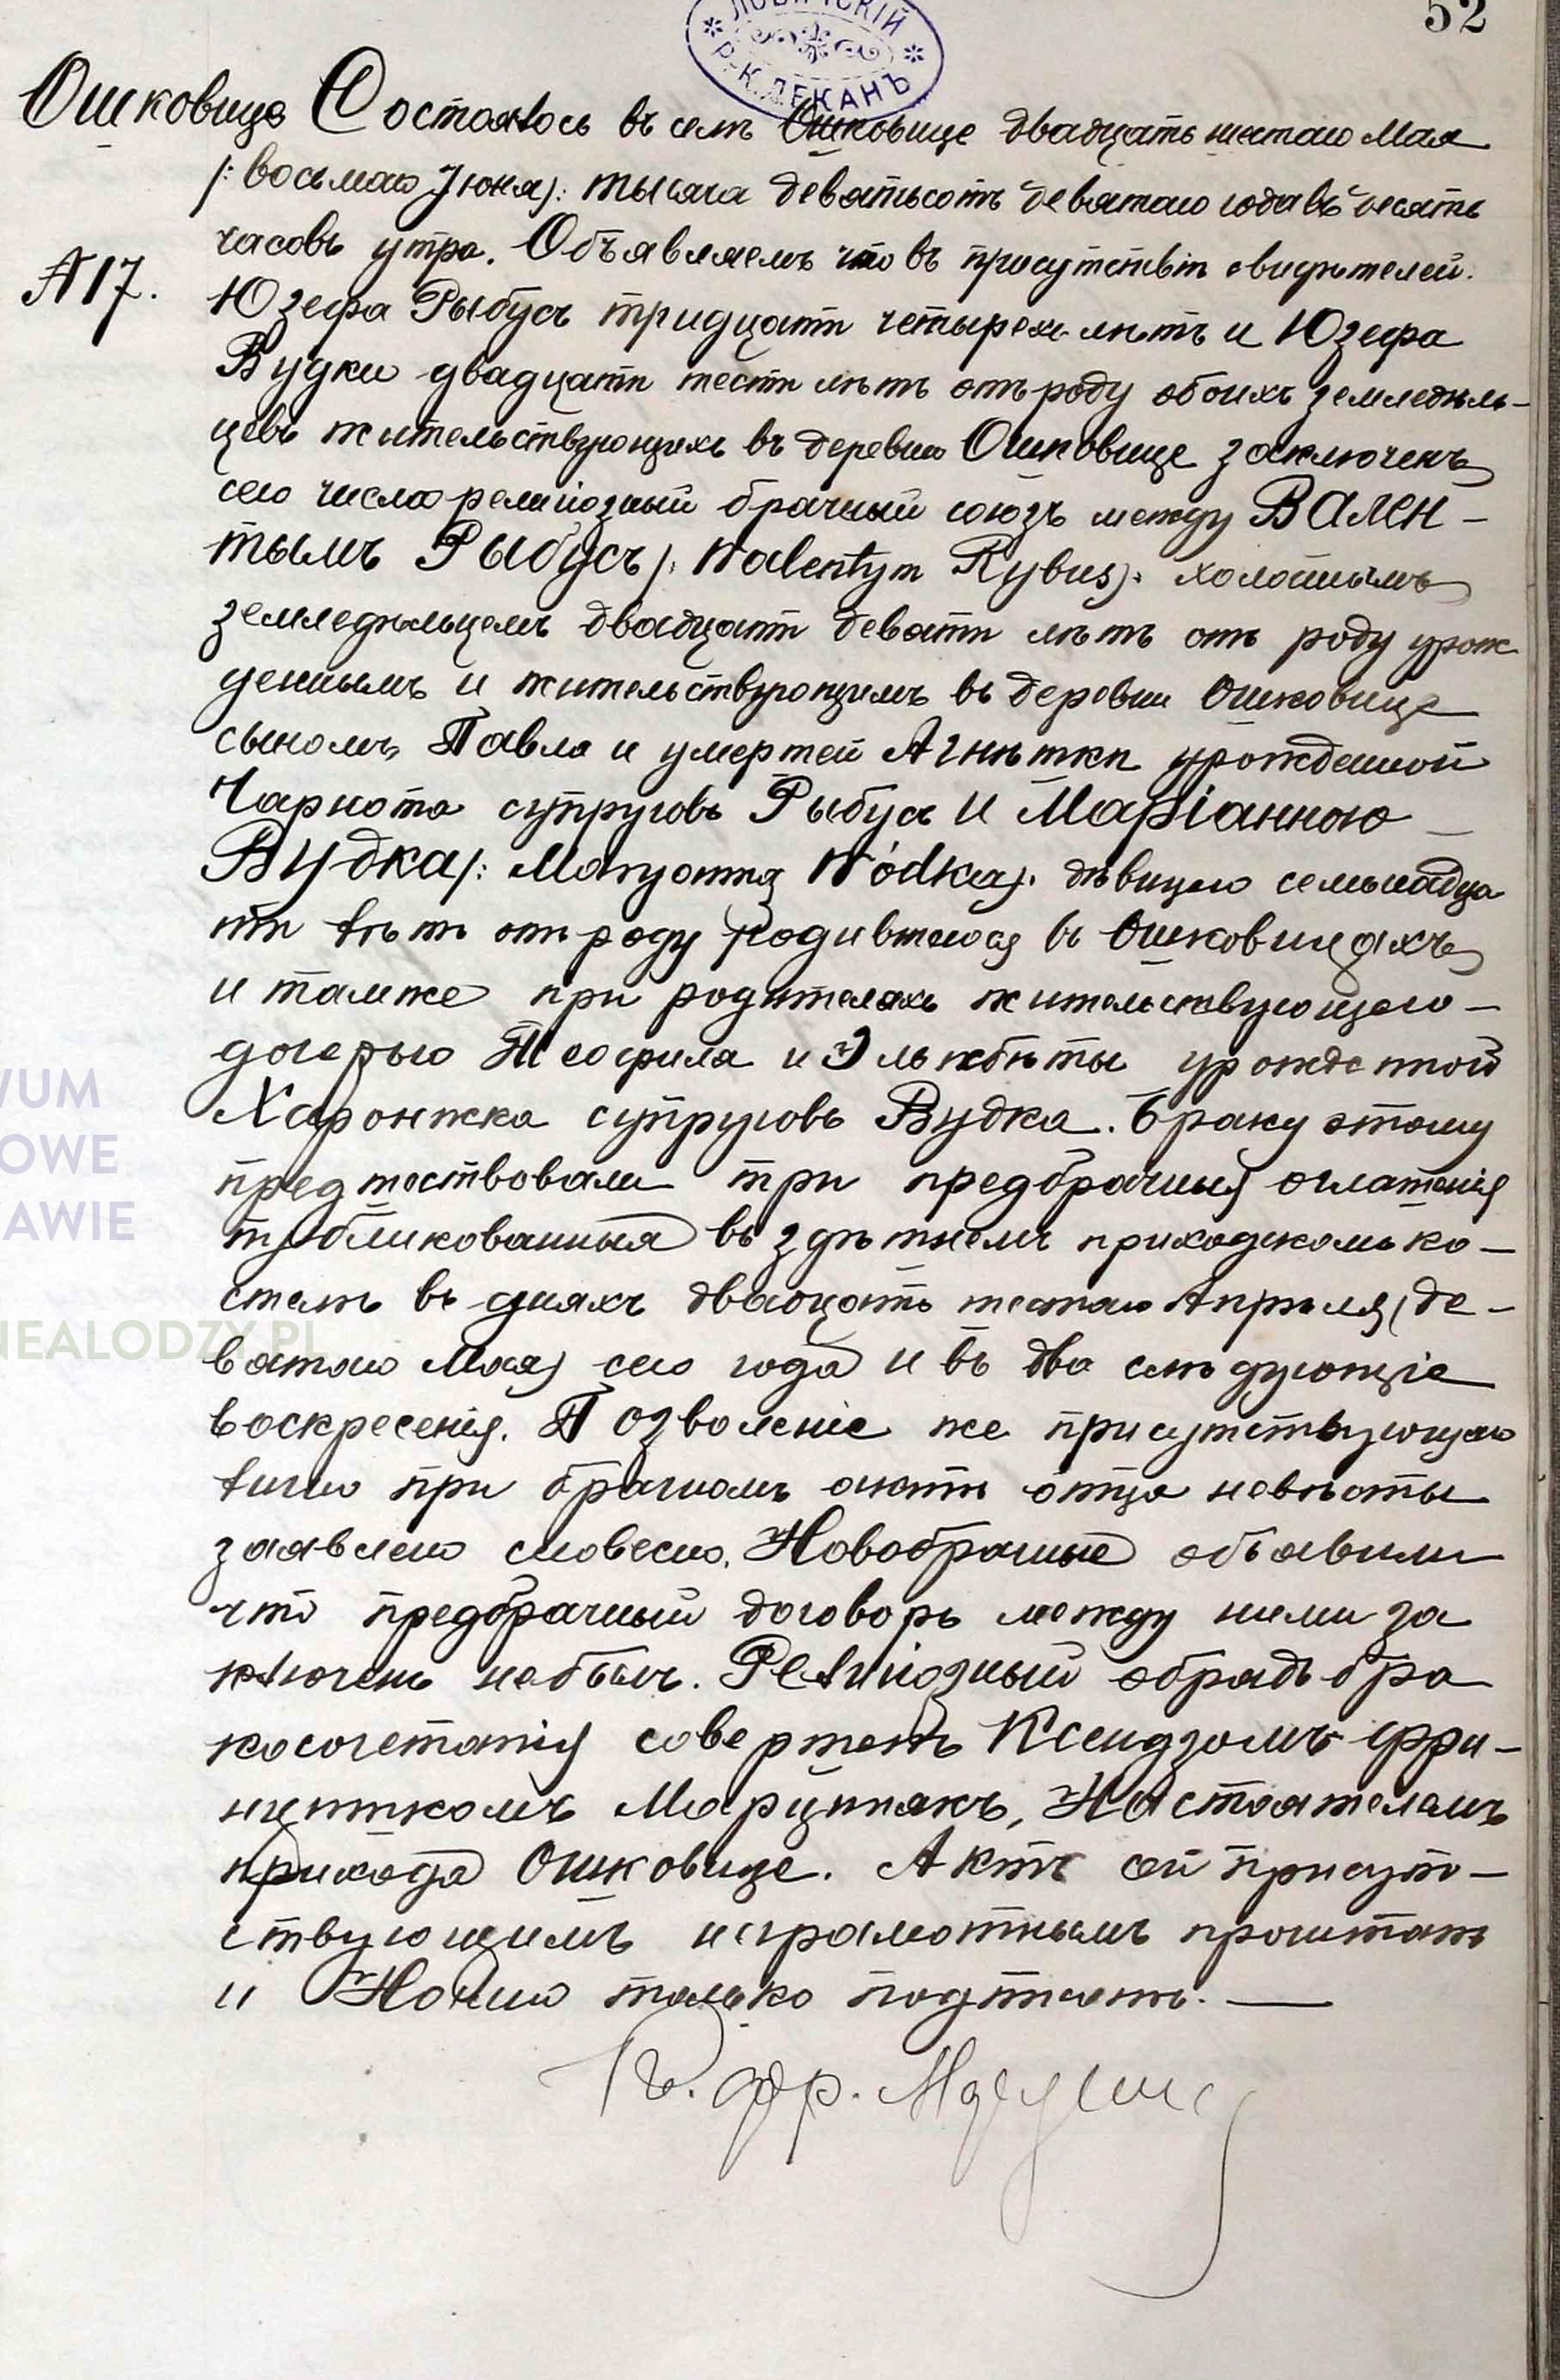 52
ЛОВИЧСКІЙ
Р.К. ДЕКАНЪ
Ошковице Состоялось въ селѣ Ошковице двадцать шестаго Мая
/: восьмаго Іюня /: тысяча девятьсотъ девятаго года въ десять
часовъ утра. Объявляемъ что въ присутствіи свидѣтелей
№ 17. Юзефа Рыбусъ тридцати четырехъ лѣтъ и Юзефа
Вудки двадцати шести лѣтъ отъ роду обоихъ земледѣль-
цевъ жительствующихъ въ деревни Ошковице заключенъ
сего числа религіозный брачный союзъ между Вален-
тымъ Рыбусъ /: Walentym Rybus /: холостымъ
земледѣльцемъ двадцати девяти лѣтъ отъ роду урож
деннымъ и жительствующимъ въ деревни Ошковице
сыномъ Павла и умершей Агнѣшки урожденной
Чарнота супруговъ Рыбусъ и Маріанною
Вудка /: Maryanną Wódka /: дѣвицею семьнадца
ти лѣтъ отъ роду родившеюся въ Ошковицахъ
и тамже при родителяхъ жительствующею -
дочерью Теофиля и Эльжбѣты урожденной
Хафонжка супруговъ Вудка. Браку этому
предшествовали три предбрачныя оглашенія
публикованныя въ здѣшнемъ приходскомъ ко-
стелѣ въ дняхъ двадцать шестаго Апрѣля (де-
вятаго Мая) сего года и въ два слѣдующіе
воскресенія. Позволеніе же присутствующаго
лично при брачномъ актѣ отца невѣсты
заявлено словесно. Новобрачные объявили
что предбрачный договоръ между ними за
ключенъ небылъ. Религіозный обрядъ бра
косочетанія совершенъ Ксендзомъ Фран-
цишкомъ Марцинякъ, Настоятелемъ
прихода Ошковице. Актъ сей присут-
ствующимъ неграмотнымъ прочитанъ
и Нами только подписанъ. —
WUM
OWE
AWIE
NEALODZY.PL